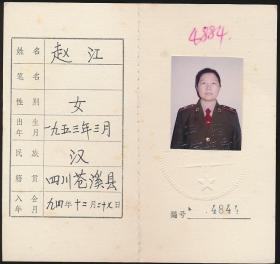 4884
姓名 赵江
笔名
性别 女
出生年月 一九五三年三月
民族 汉
籍贯 四川苍溪县
入会年月 九四年十二月二十八日
编号 4844